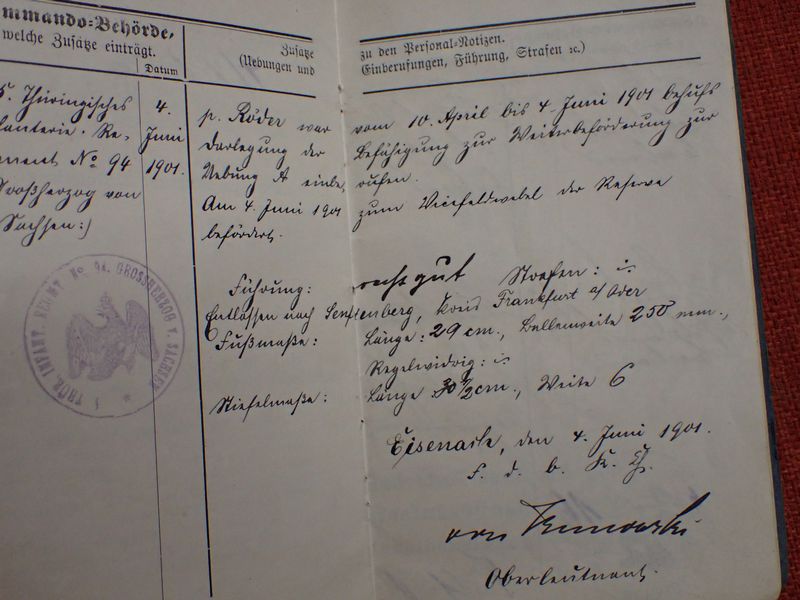 mmando=Behörde,
welche Zusätze einträgt.
Datum
Zusätze zu den Personal=Notizen.
(Uebungen und Einberufungen, Führung, Strafen ꝛc.)
5. Thüringisches
anterie-Re-
ment No 94
Großherzog von
Sachsen:)
4.
Juni
1901.
p. Röder war vom 10. April bis 4. Juni 1901 behufs
Darlegung der Befähigung zur Weiterbeförderung zur
Uebung A einbe rufen.
Am 4. Juni 1901 zum Vicefeldwebel der Reserve
befördert.
Führung: gut Strafen:
Entlassen nach Senftenberg, Kreis Frankfurt a/Oder
Fußmaße: Länge: 29 cm., Ballenweite 250 mm.,
Regelwidrig:
Stiefelmaße: Länge 30 1/2 cm., Weite 6
Eisenach, den 4. Juni 1901.
F. d. b. K. Ch.
von
Oberleutnant.
5. THÜR. INFANT. REGMT. No. 94. GROSSHERZOG V. SACHSEN